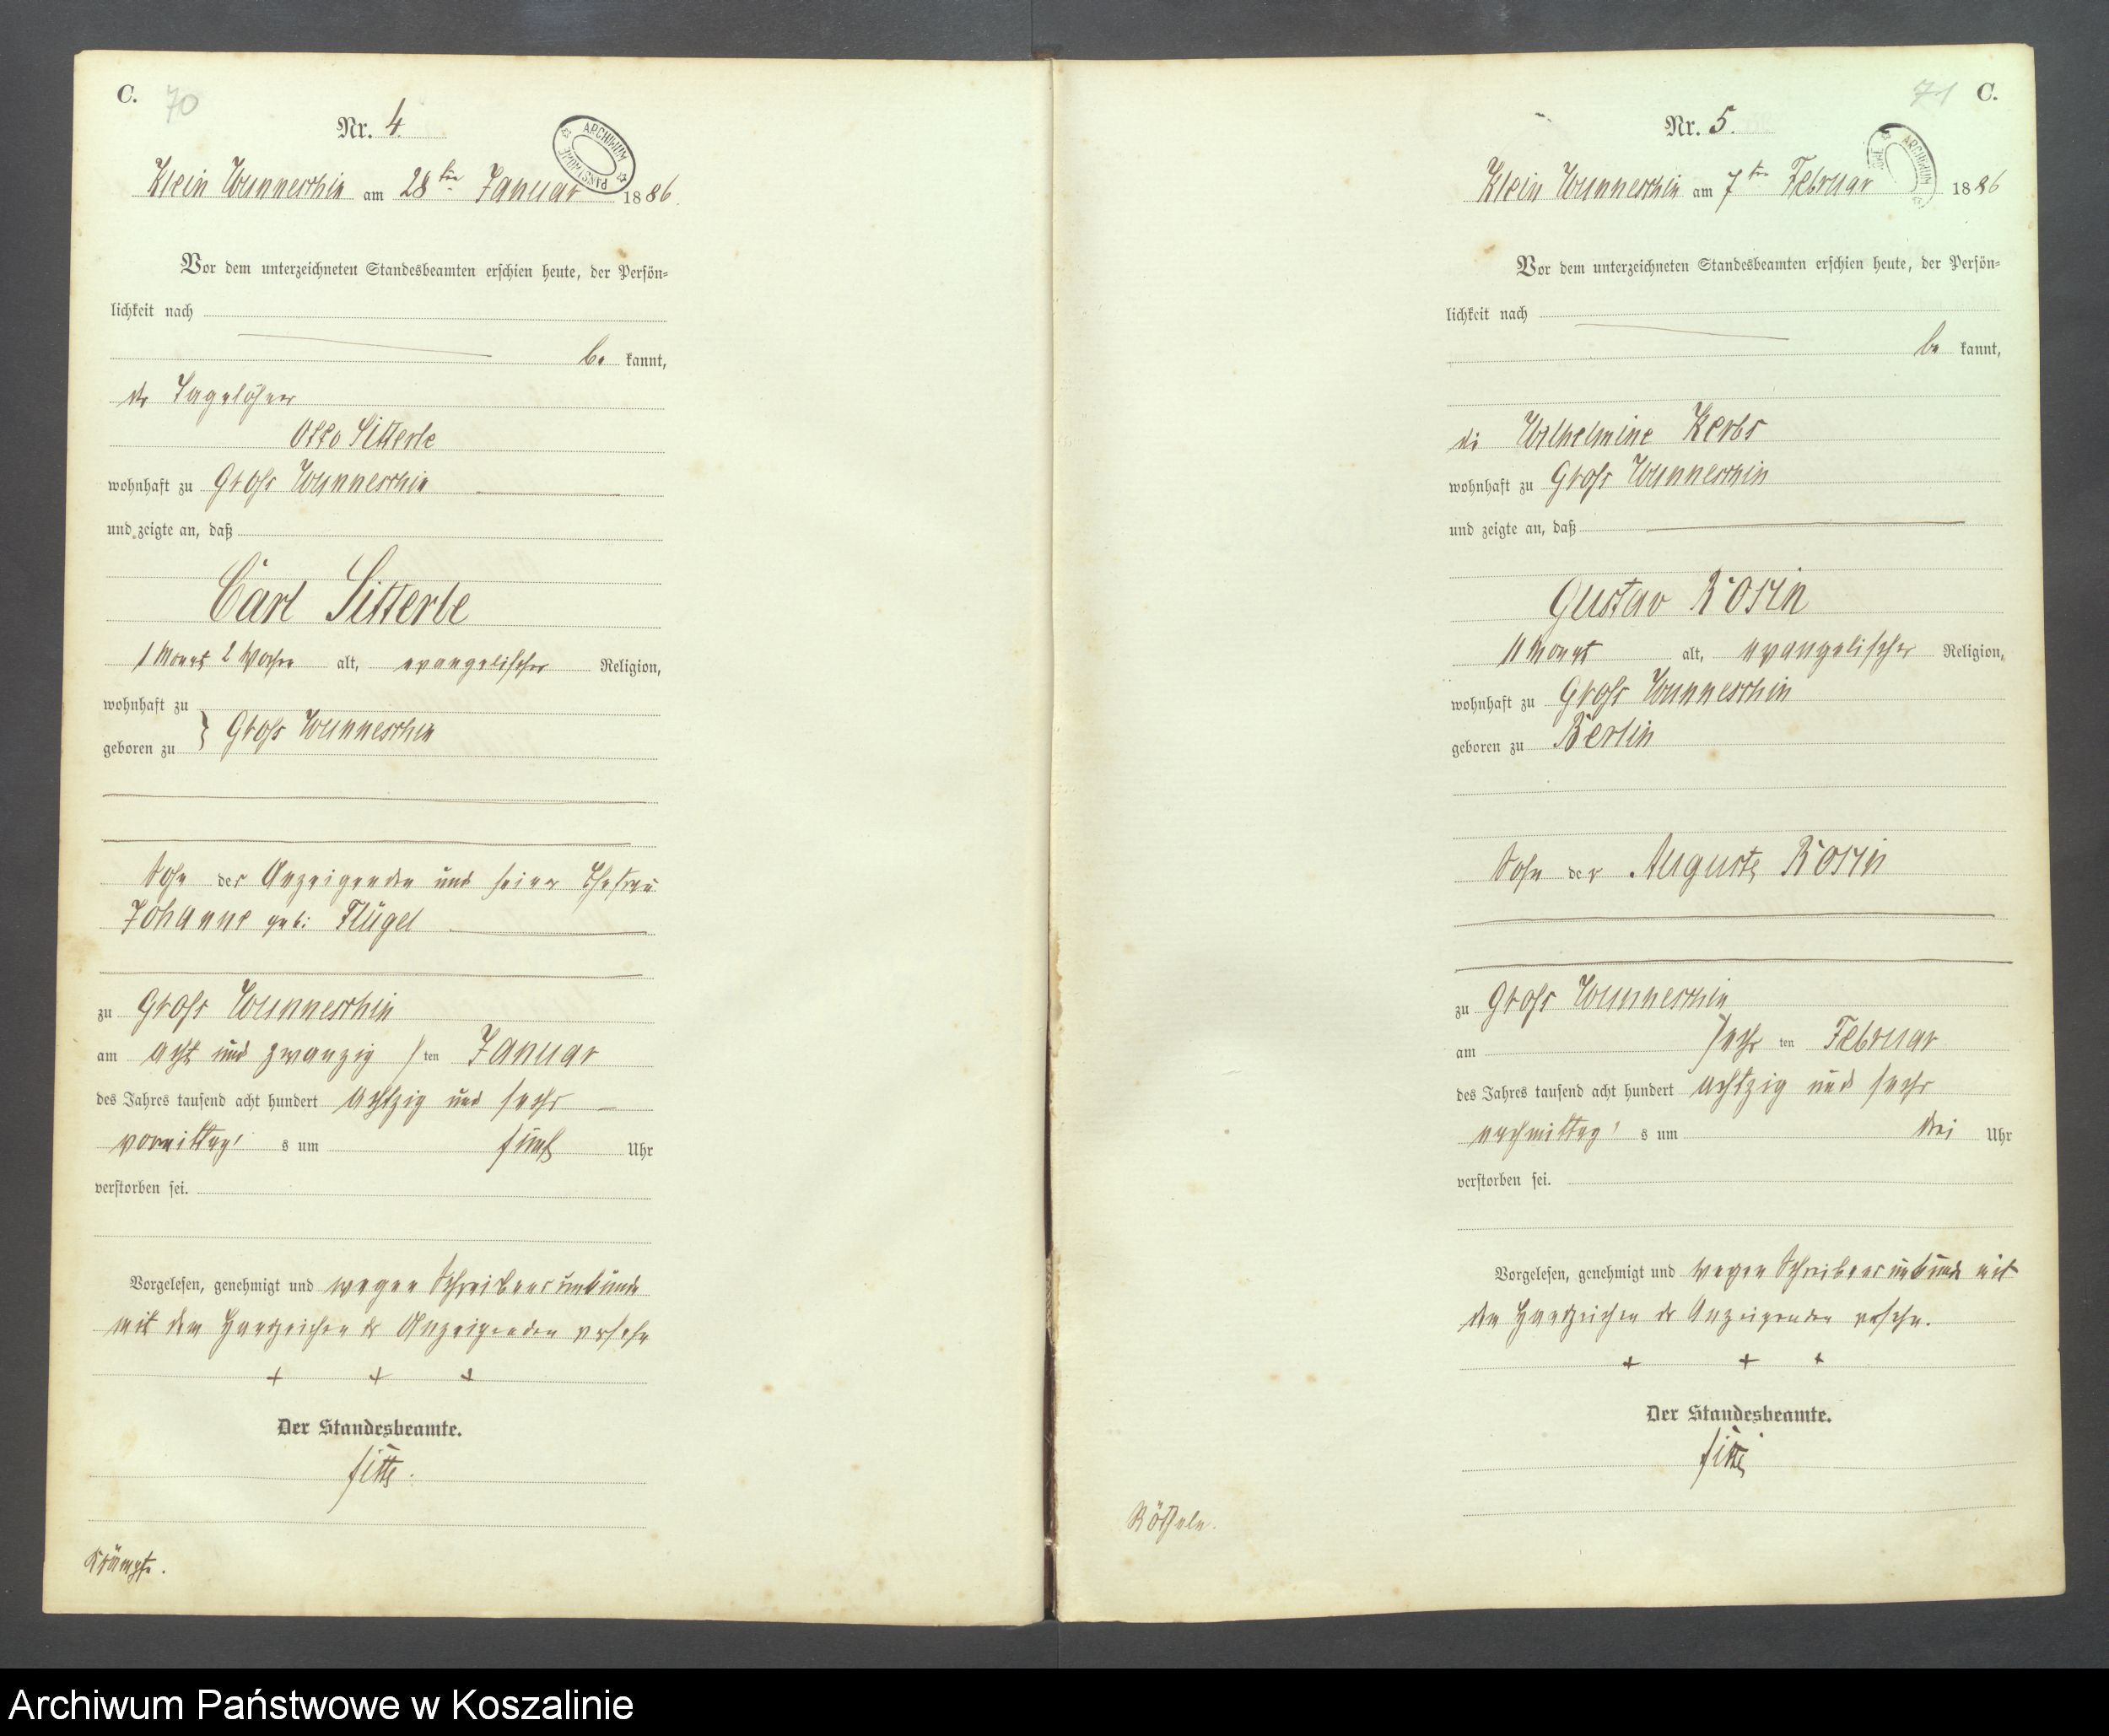 C. 70
Nr. 4.
ARCHIWUM PAŃSTWOWE
Klein Wunneschin am 28ten Januar 1886.
Vor dem unterzeichneten Standesbeamten erschien heute, der Persön-
lichkeit nach
be kannt,
der Tagelöhner
Otto Sitterle
wohnhaft zu Groß Wunneschin
und zeigte an, daß
Carl Sitterle
1 Monat 2 Wochen alt, evangelischer Religion,
wohnhaft zu
geboren zu } Groß Wunneschin
Sohn des Anzeigenden und seiner Ehefrau
Johanne geb: Flügel
zu Groß Wunneschin
am acht und zwanzigsten Januar
des Jahres tausend acht hundert achtzig und sechs
vormittags um fünf Uhr
verstorben sei.
Vorgelesen, genehmigt und wegen Schreibensunkunde
mit dem Handzeichen des Anzeigenden versehn
+ + +
Der Standesbeamte.
Krämpfe.
71 C.
Nr. 5.
ARCHIWUM
Klein Wunneschin am 7ten Februar 1886
Vor dem unterzeichneten Standesbeamten erschien heute, der Persön-
lichkeit nach
be kannt,
die Wilhelmine Kerbs
wohnhaft zu Groß Wunneschin
und zeigte an, daß
Gustav Rosin
11 Monat alt, evangelischer Religion,
wohnhaft zu Groß Wunneschin
geboren zu Berlin
Sohn der Auguste Rosin
zu Groß Wunneschin
am sechsten Februar
des Jahres tausend acht hundert achtzig und sechs
nachmittags um drei Uhr
verstorben sei.
Vorgelesen, genehmigt und wegen Schreibensunkunde mit
dem Handzeichen der Anzeigenden versehn.
+ + +
Der Standesbeamte.
Rötheln.
Archiwum Państwowe w Koszalinie